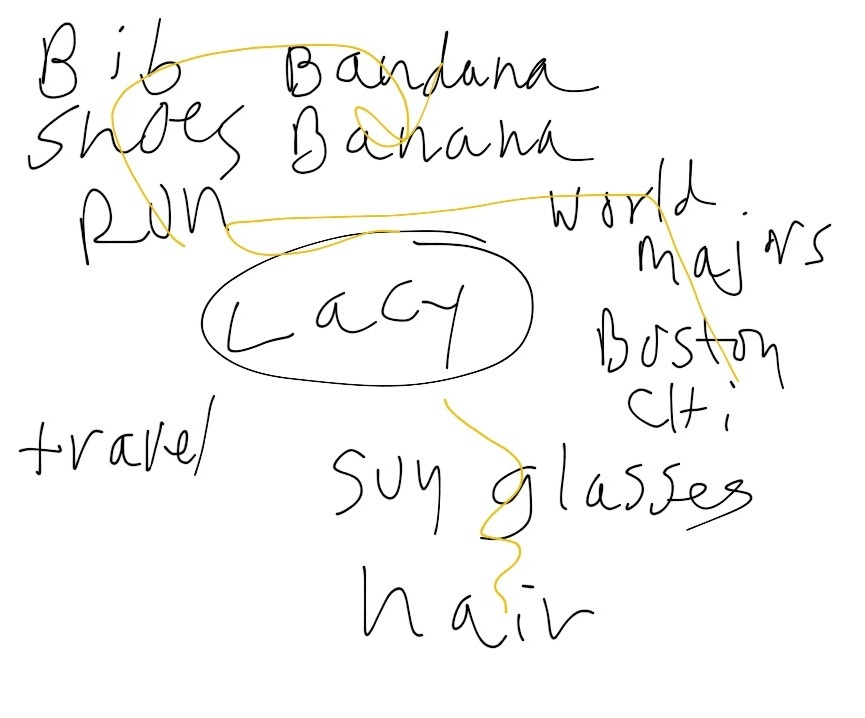 Bib Bandana
Shoes Banana
RUN
World
Majors
Lacy
Boston
CHi
travel
Sunglasses
hair